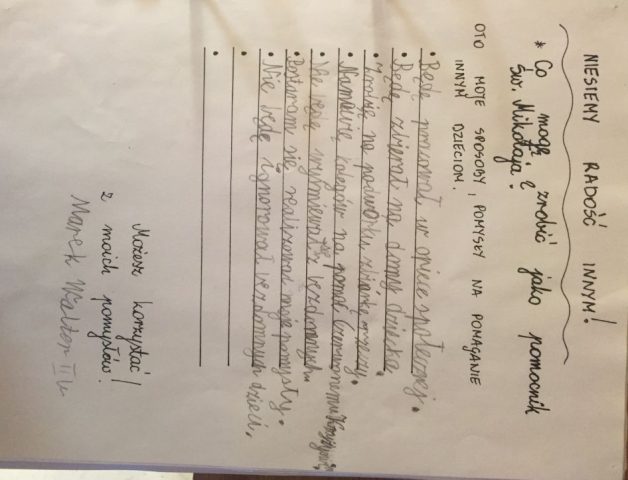 NIESIEMY RADOŚĆ INNYM!
* Co mogę zrobić jako pomocnik
św. Mikołaja?
OTO MOJE SPOSOBY, POMYSŁY NA POMAGANIE
INNYM DZIECIOM.
• Będę pracował w opiece społecznej.
• Będę zbierał na domy dziecka.
• Zrobię na podwórku zbiórkę rzeczy.
• Namówię kolegów na pomoc Czerwonemu Krzyżowi.
• Nie będę wyśmiewał się z bezdomnych.
• Postaram się realizować moje pomysły.
• Nie będę ignorował bezdomnych dzieci.
•
•
Możesz korzystać
z moich pomysłów!
Marek Walter II